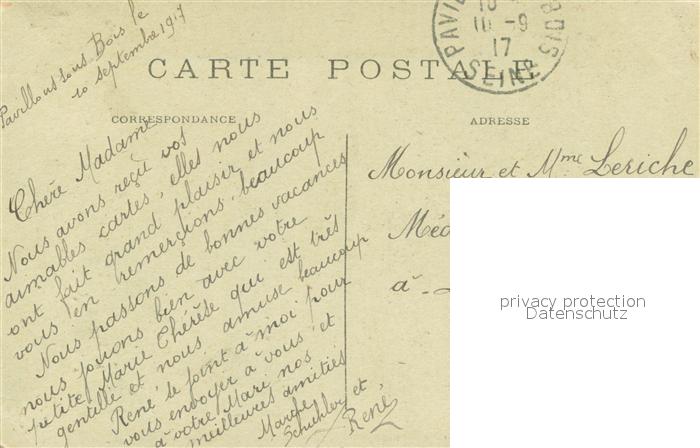 Pavillons sous Bois le
10 septembre 1917
CARTE POSTALE
CORRESPONDANCE
ADRESSE
10 -9
17
SEINE
Chère Madame
Nous avons reçu vos
aimables cartes, elles nous
ont fait grand plaisir et nous
vous en remerçions beaucoup
Nous passons de bonnes vacances
nous jouons bien avec votre
petite Marie Thérèse qui est très
gentille et nous amuse beaucoup
René se joint à moi pour
vous envoyer à vous et
à votre Mari nos
meilleures amitiés
et
René
Monsieur et Mme Leriche
à
privacy protection
Datenschutz